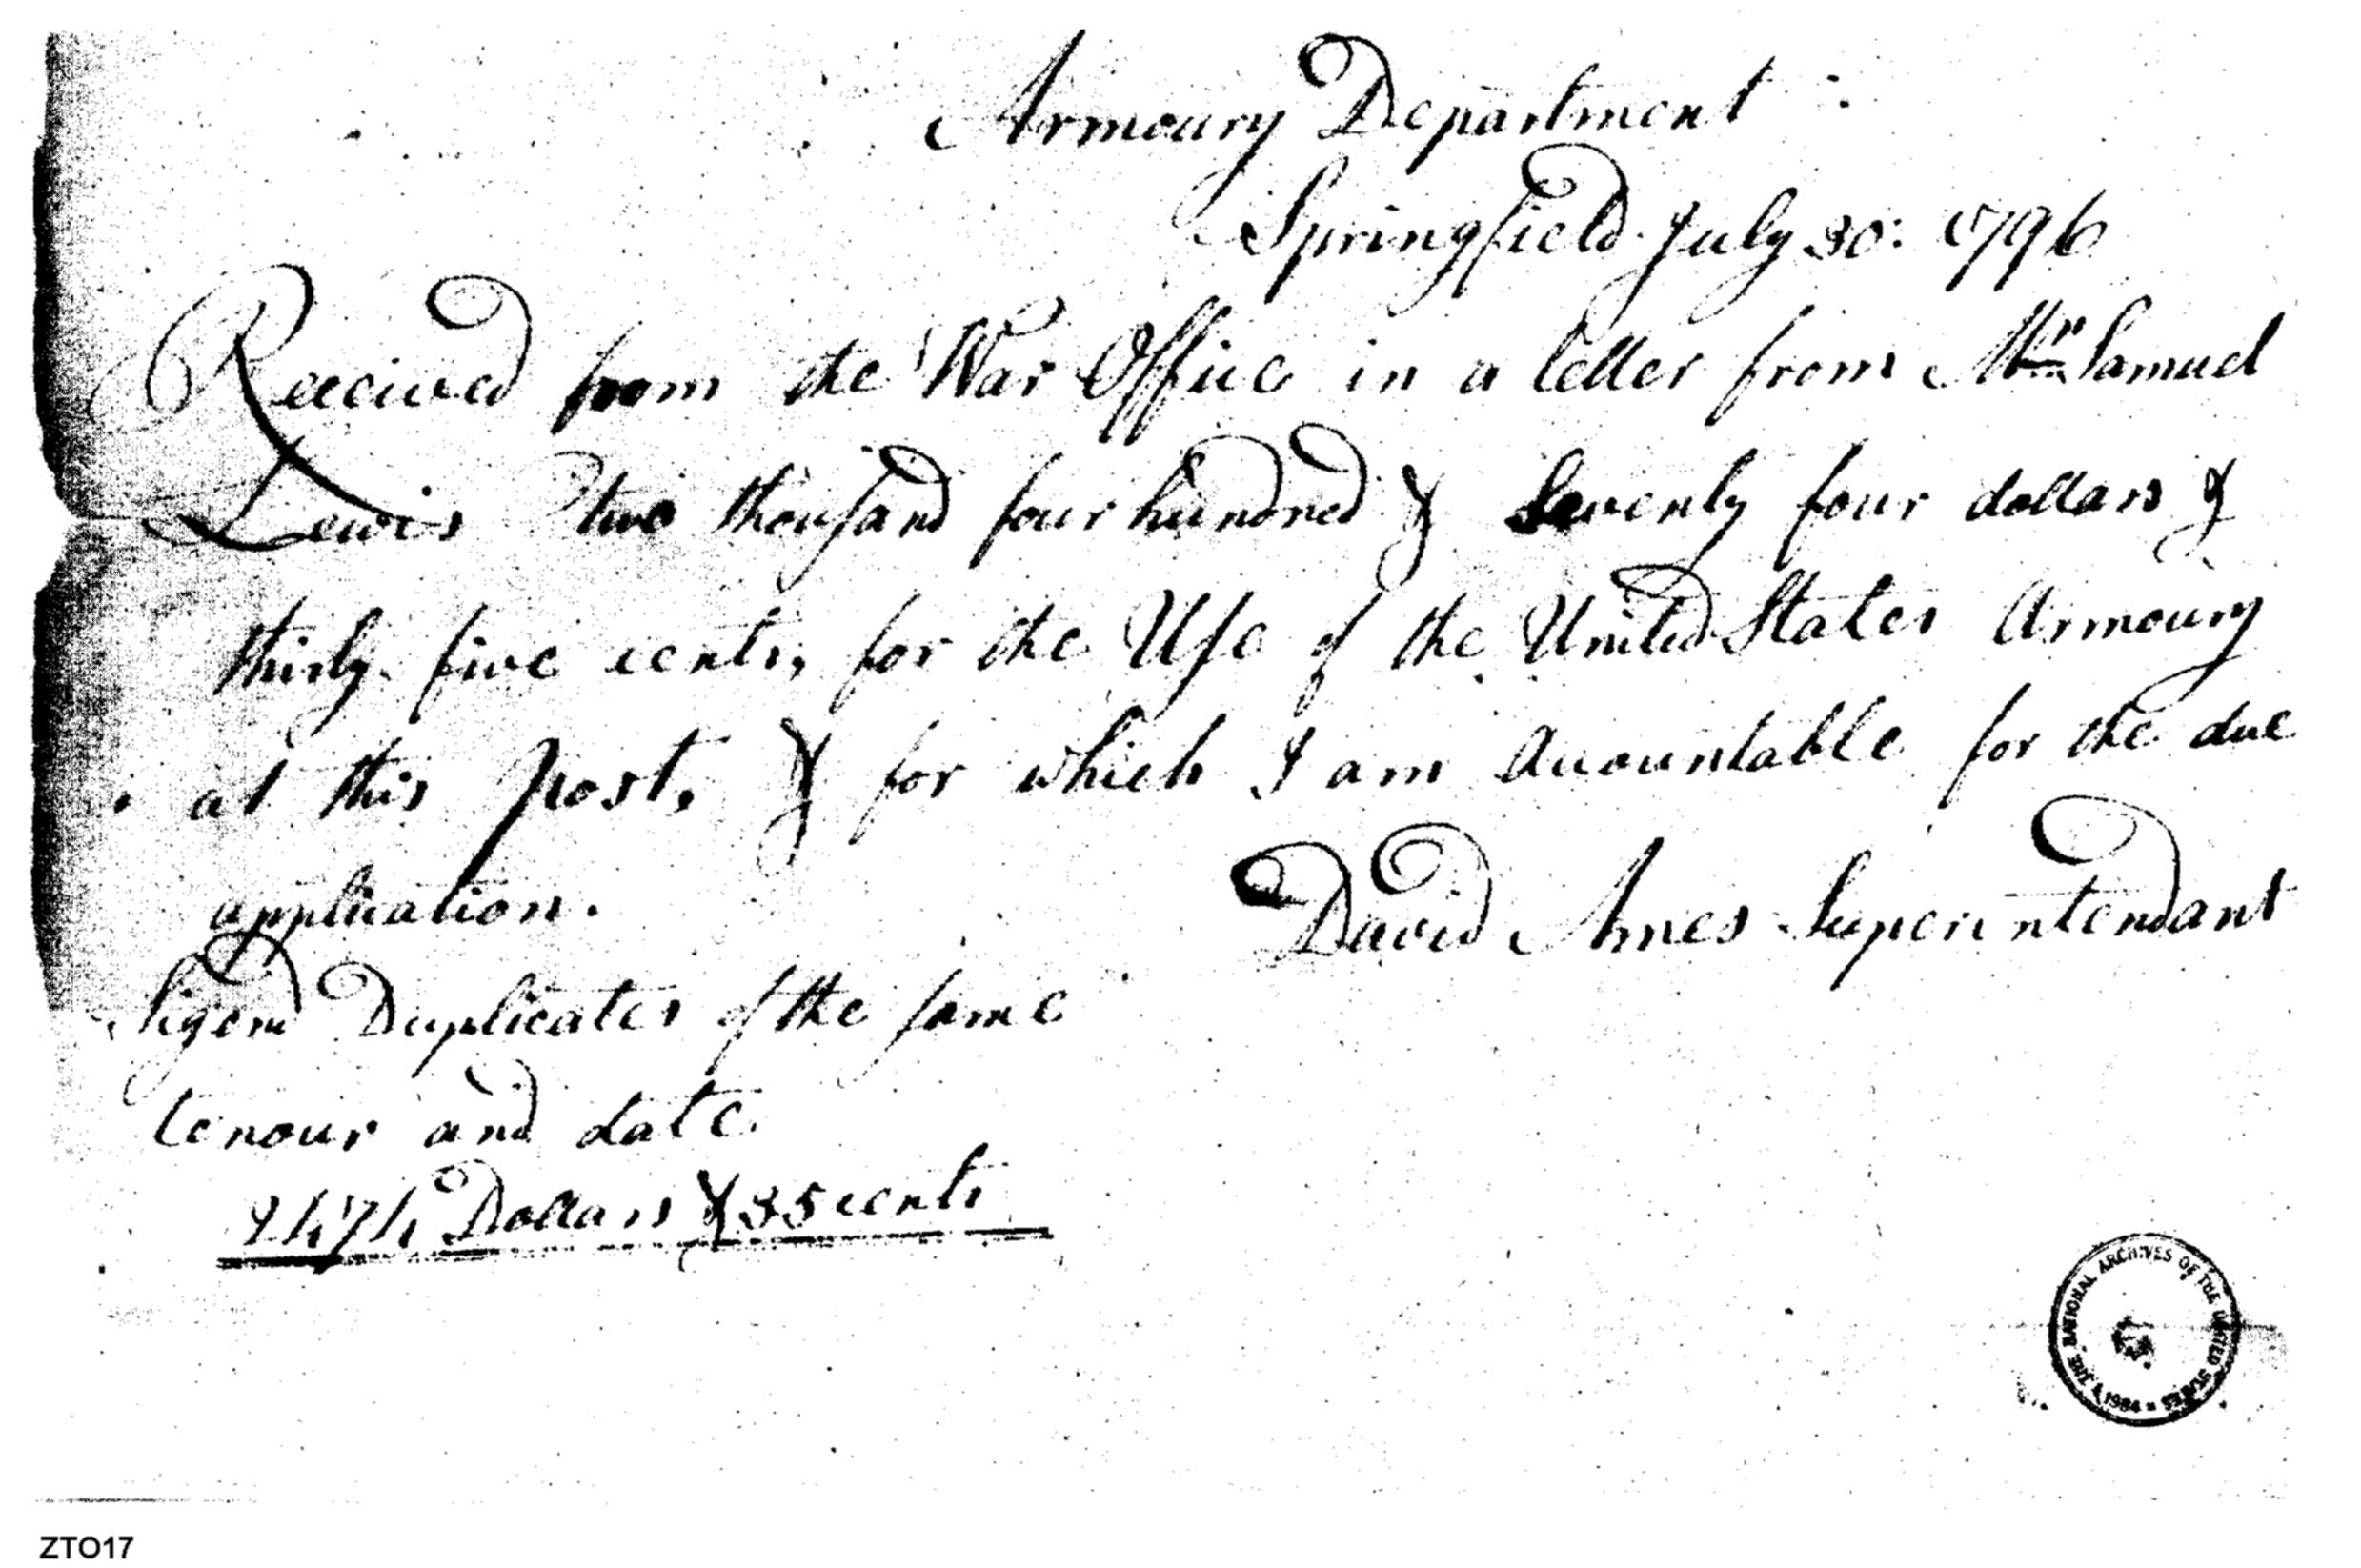 Armoury Department
Springfield July 30: 1796
Received from the War Office in a letter from Mr Samuel
Lewis two thousand four hundred & Seventy four dollars &
thirty five cents, for the Use of the United States Armoury
at this post, & for which I am Accountable for the due
application.
David Ames Superintendant
Sigend Duplicates of the same
tenour and date
2474 Dollars & 35 cents
THE NATIONAL ARCHIVES OF THE UNITED STATES
1984
ZTO17